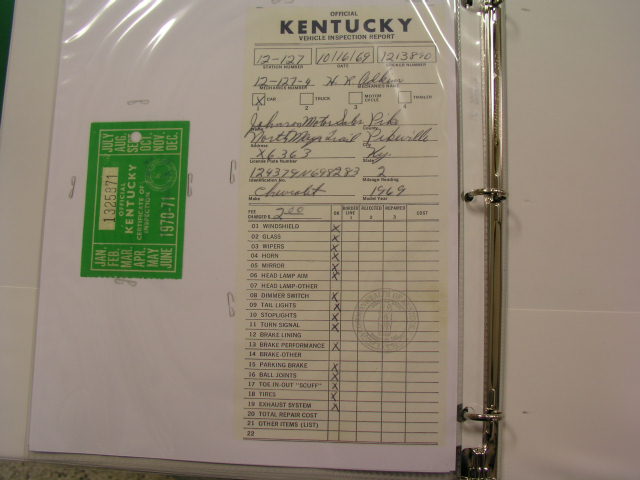 OFFICIAL
KENTUCKY
VEHICLE INSPECTION REPORT
12-127 10/16/69 1213890
STATION NUMBER DATE STICKER NUMBER
12-127-4 H. R. Adkins
MECHANICS NUMBER MECHANICS NAME
X CAR TRUCK MOTOR CYCLE TRAILER
1 2 3 4
Johnson Motor Sales Pike
North Mayo Trail Pikeville
Address City
X6363 Ky.
License Plate Number State
124379N698283 2
Identification No. Mileage Reading
Chevrolet 1969
Make Model Year
FEE CHARGED $ 2.00 OK BORDER LINE 1 REJECTED 2 REPAIRED 3 COST
01 WINDSHIELD X
02 GLASS X
03 WIPERS X
04 HORN X
05 MIRROR X
06 HEAD LAMP AIM X
07 HEAD LAMP-OTHER
08 DIMMER SWITCH X
09 TAIL LIGHTS X
10 STOPLIGHTS X
11 TURN SIGNAL X
12 BRAKE LINING
13 BRAKE PERFORMANCE X
14 BRAKE-OTHER
15 PARKING BRAKE X
16 BALL JOINTS X
17 TOE IN-OUT "SCUFF" X
18 TIRES X
19 EXHAUST SYSTEM X
20 TOTAL REPAIR COST
21 OTHER ITEMS (LIST)
22
JULY
AUG.
SEPT.
OCT.
NOV.
DEC.
1325971
OFFICIAL
KENTUCKY
CERTIFICATE OF
INSPECTION
1970-71
JAN.
FEB.
MAR.
APR.
MAY
JUNE